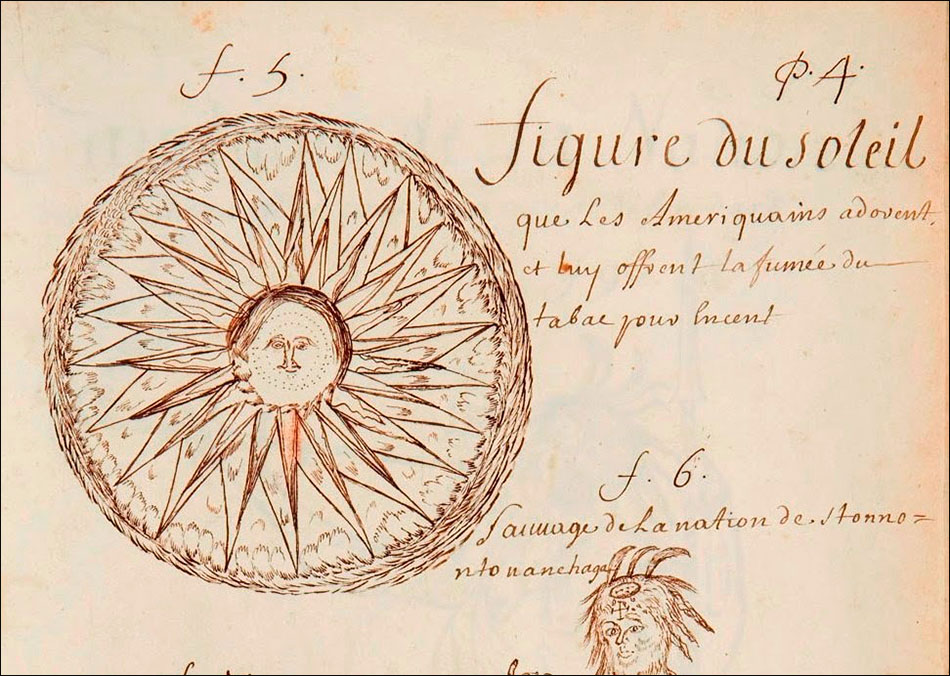 f. 5.
P. 4.
figure du soleil
que Les Ameriquains adorent,
et luy offrent la fumée du
tabac pour Encent
f. 6.
Sauuage de La nation de stonno=
ntouanchaga